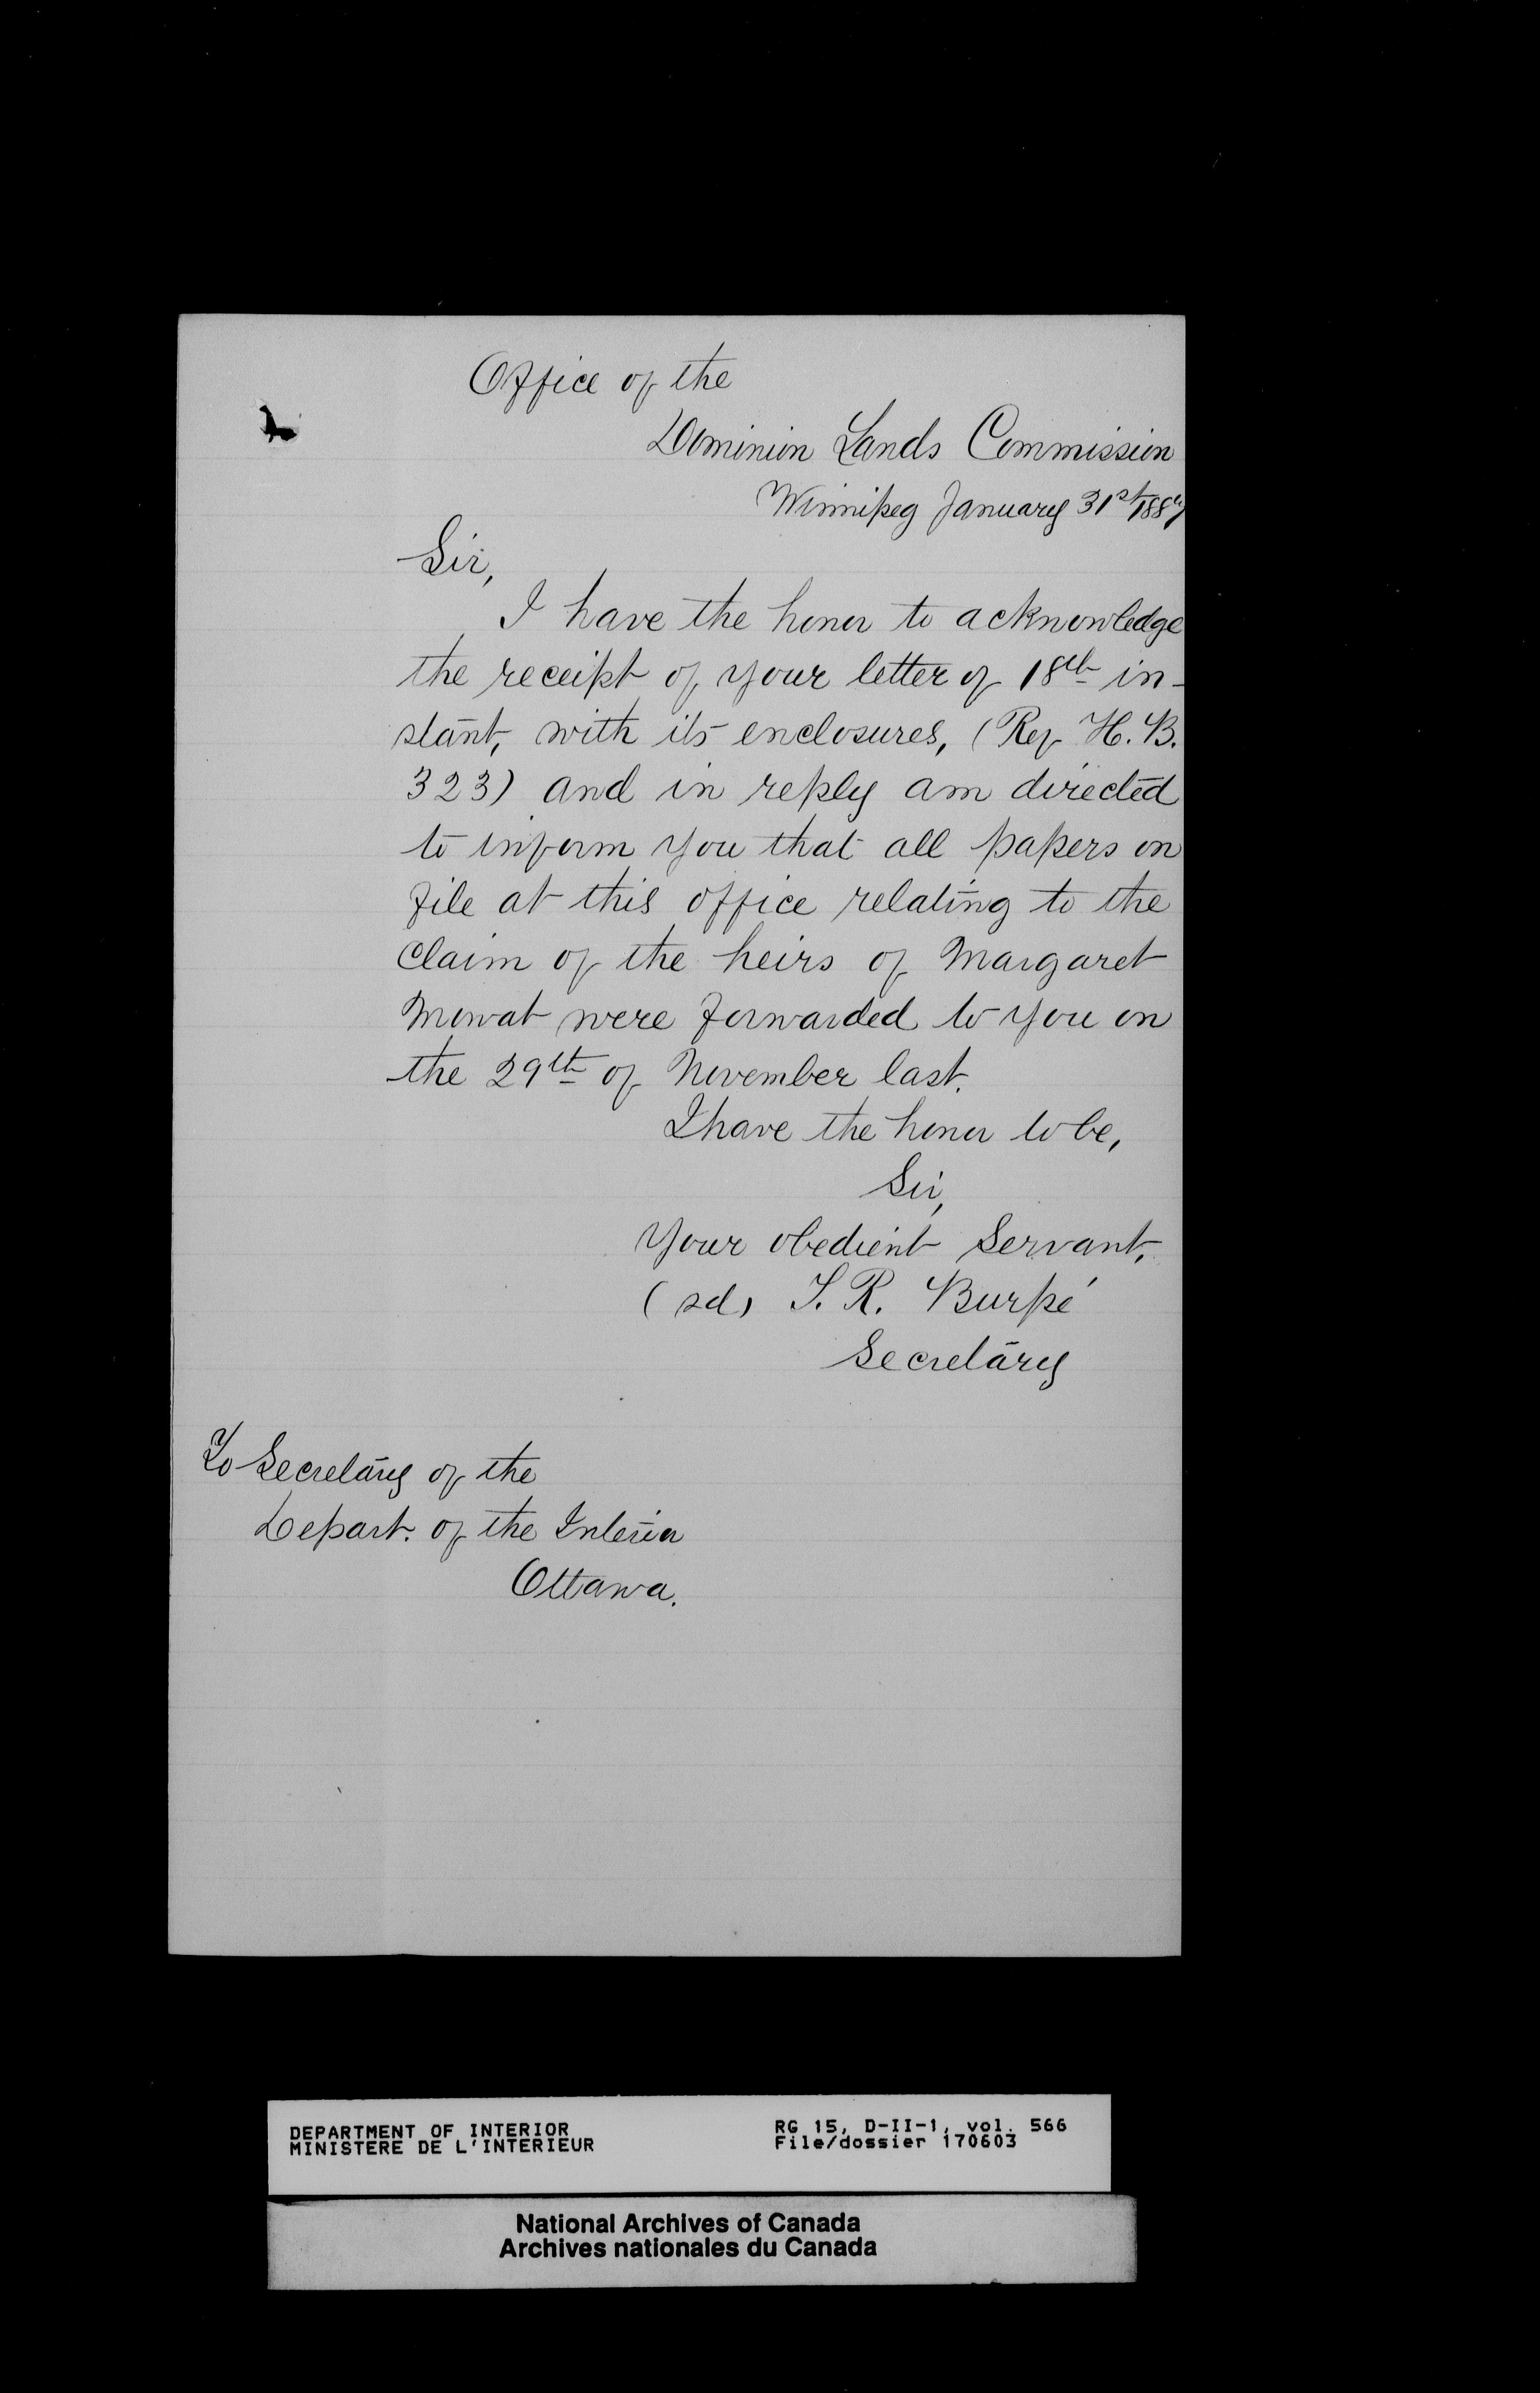 Office of the
Dominion Lands Commission
Winnipeg January 31st 1887
Sir,
I have the honor to acknowledge
the receipt of your letter of 18th in-
stant, with its enclosures, (Ref H. B.
323) and in reply am directed
to inform you that all papers on
file at this office relating to the
claim of the heirs of Margaret
Mowat were forwarded to you on
the 29th of November last.
I have the honor to be,
Sir,
Your obedient Servant,
(sd) S. R. Burpé
Secretary
To Secretary of the
Depart. of the Interior
Ottawa.
DEPARTMENT OF INTERIOR RG 15, D-II-1, vol. 566
MINISTERE DE L'INTERIEUR File/dossier 170603
National Archives of Canada
Archives nationales du Canada